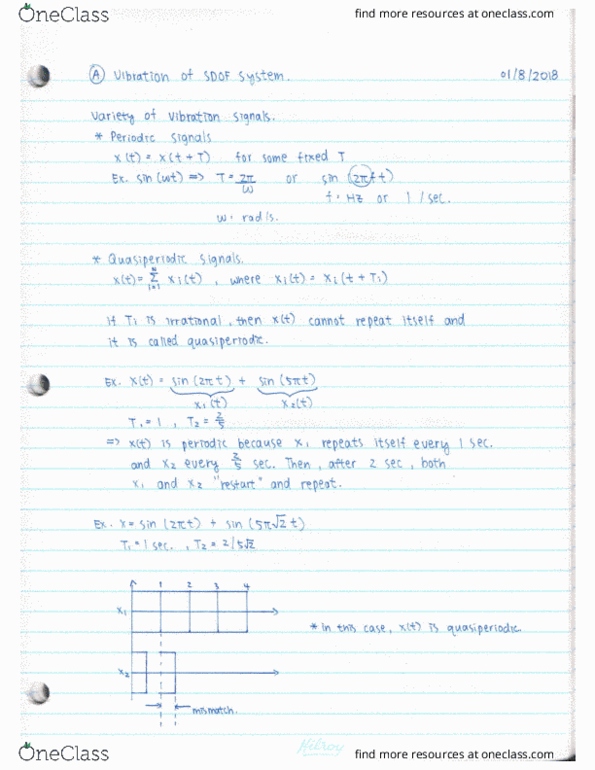 OneClass
find more resources at oneclass.com
Ⓐ Vibration of SDOF System.
01/8/2018
Variety of Vibration Signals.
* Periodic Signals
x(t) = x(t+T) for some fixed T
Ex. sin(ωt) => T = 2π/ω or sin(2πft)
f: Hz or 1/sec.
ω: rad/s.
* Quasiperiodic Signals.
x(t) = Σ xi(t), where xi(t) = xi(t+Ti)
if Ti is irrational, then x(t) cannot repeat itself and
it is called quasiperiodic.
Ex. x(t) = sin(2πt) + sin(5πt)
x1(t) x2(t)
T1 = 1, T2 = 2/5
=> x(t) is periodic because x1 repeats itself every 1 sec.
and x2 every 2/5 sec. Then, after 2 sec, both
x1 and x2 "restart" and repeat.
Ex. x = sin(2πt) + sin(5π√2t)
T1 = 1 sec., T2 = 2/5√2
1 2 3 4
x1
* in this case, x(t) is quasiperiodic.
x2
mismatch.
Hilroy
OneClass
find more resources at oneclass.com